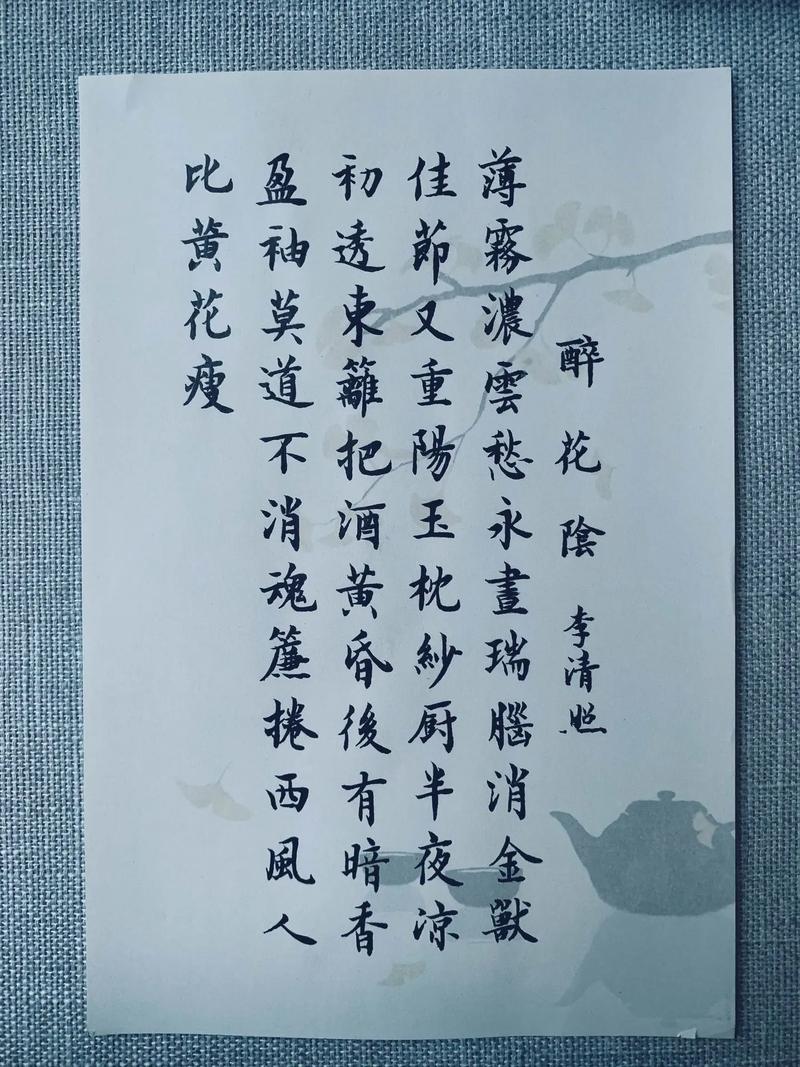 醉花陰 李清照
薄霧濃雲愁永晝瑞腦消金獸
佳節又重陽玉枕紗厨半夜涼
初透東籬把酒黃昏後有暗香
盈袖莫道不消魂簾捲西風人
比黃花瘦